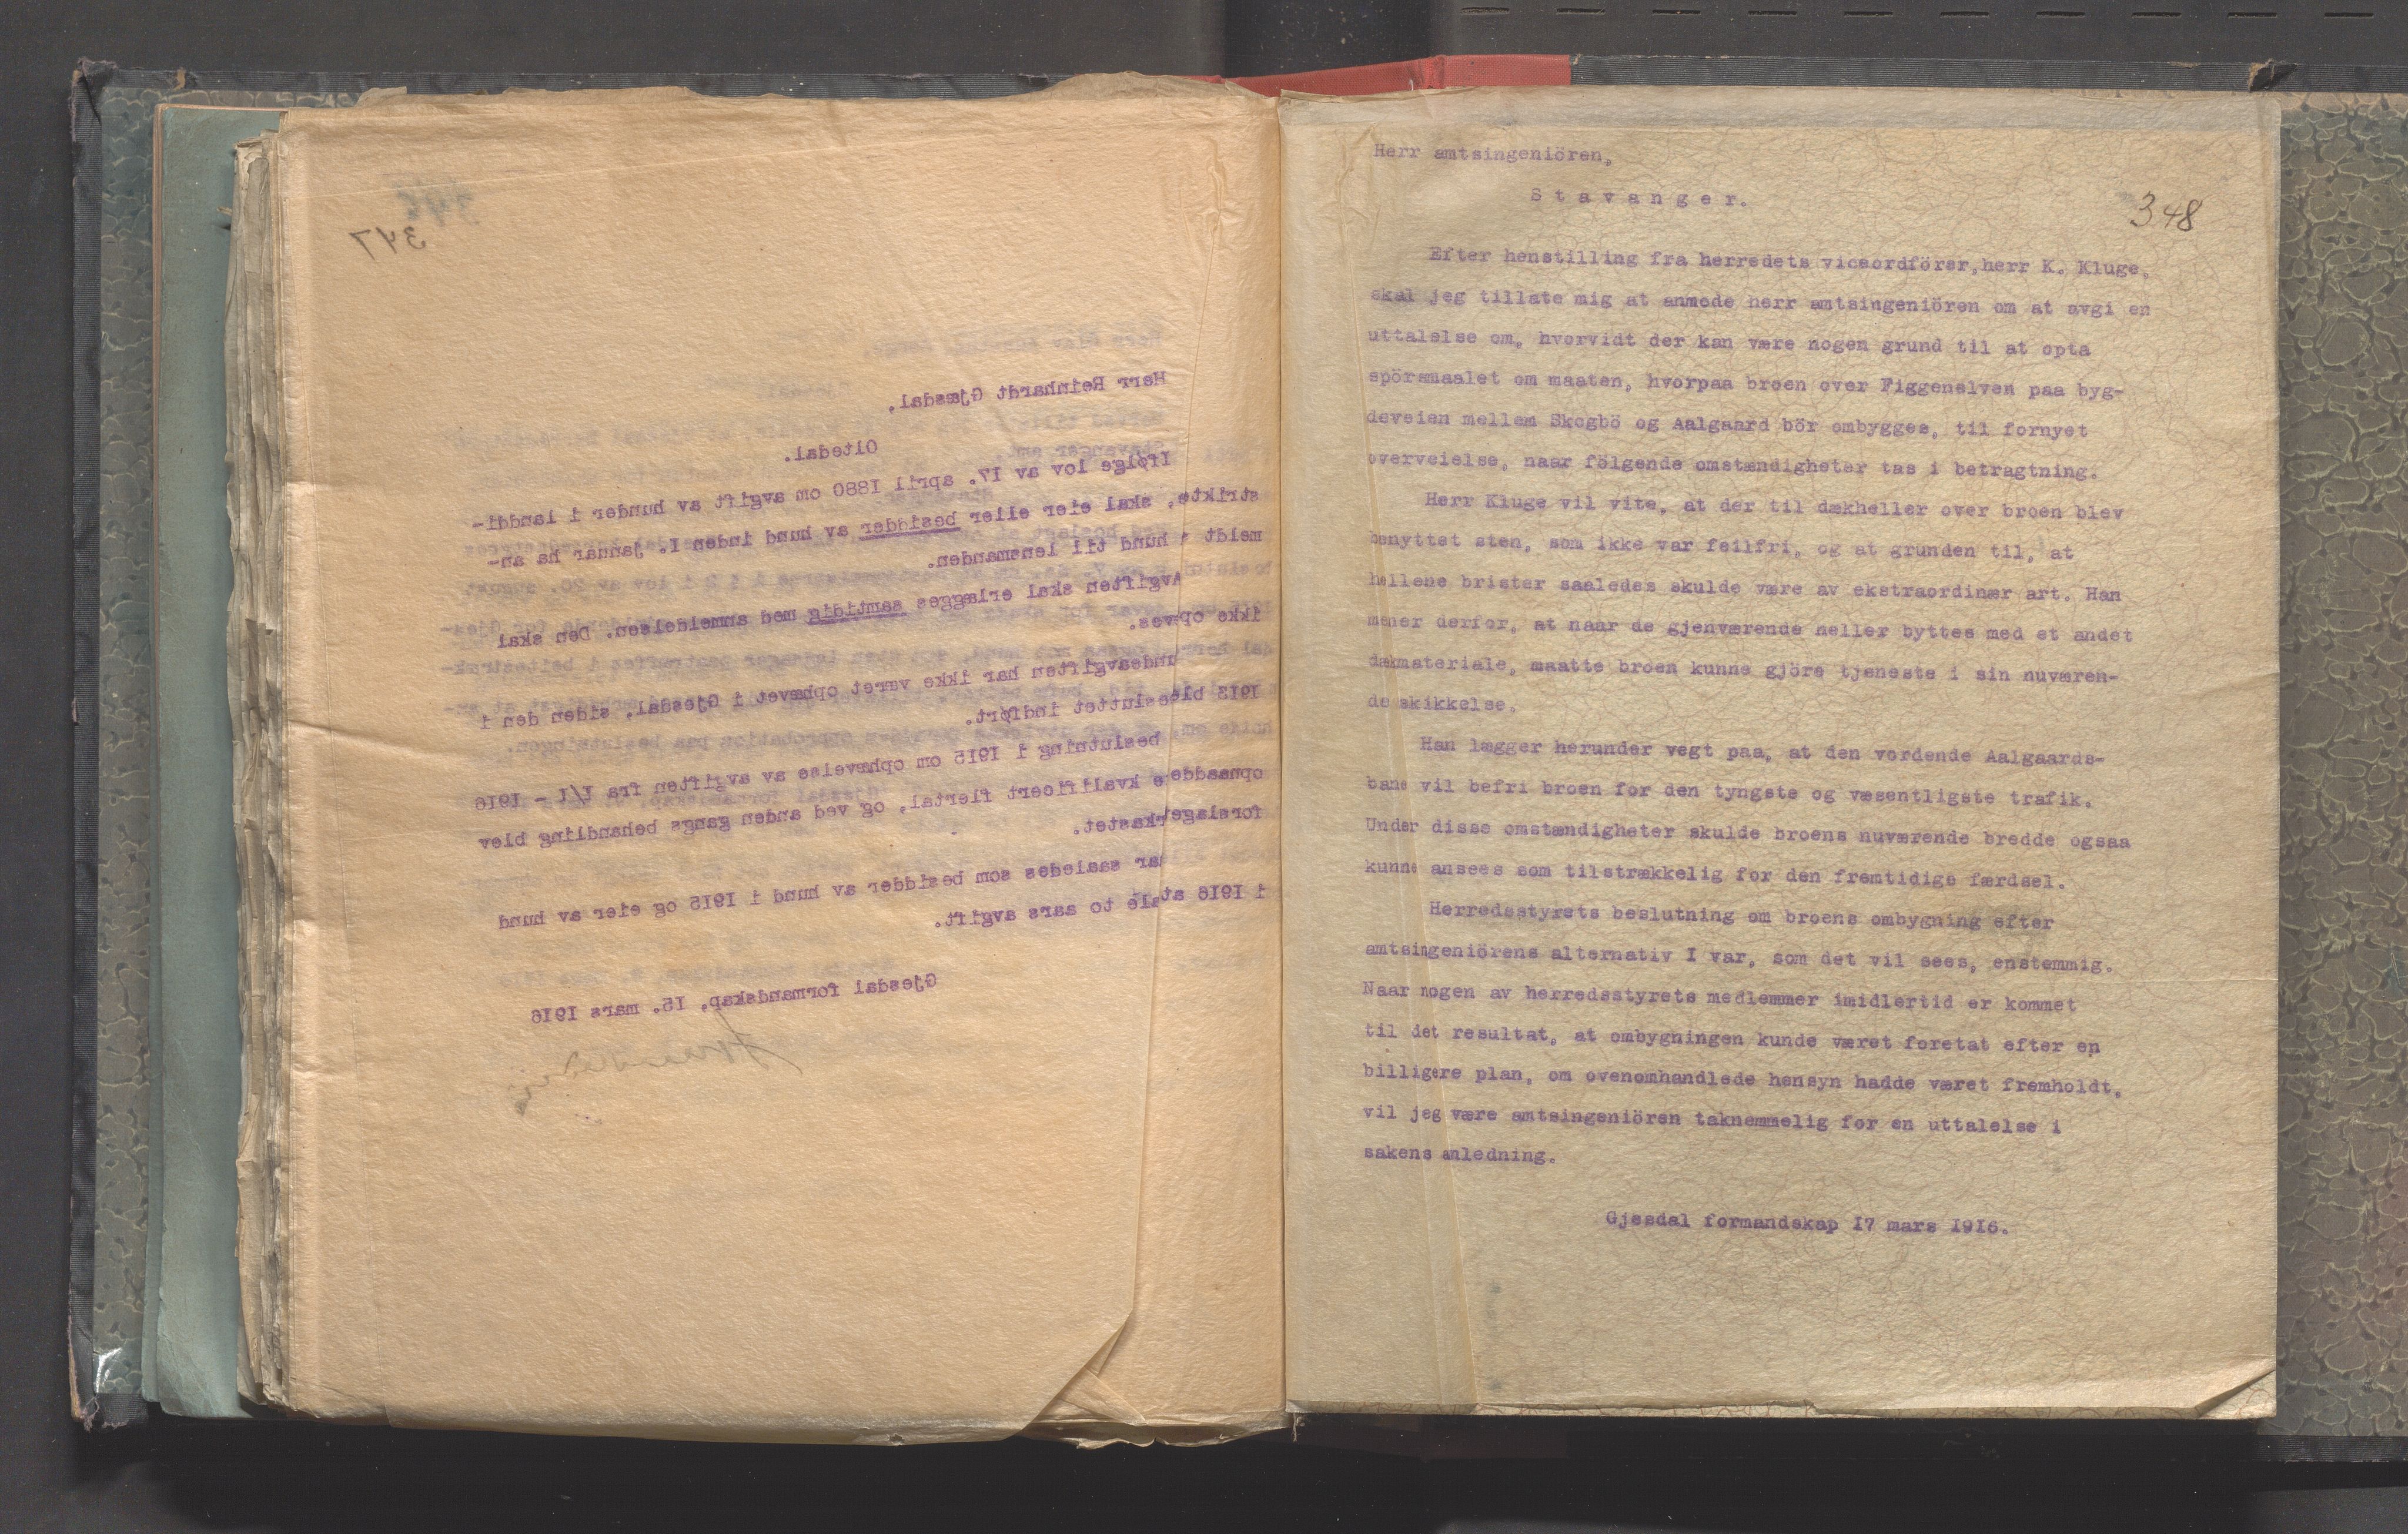 347
Herr Reinhardt Gjæsdal,
Oltedal.
Ifølge lov av 17. april 1880 om avgift av hunder i landdi-
strikte, skal eier eller besidder av hund inden 1. januar ha an-
meldt hund til lensmanden.
Avgiften skal erlægges samtidig med anmeldelsen. Den skal
ikke opgives.
Hundeavgiften har ikke været ophævet i Gjesdal, siden den i
1913 blev besluttet indført.
beslutning i 1915 om ophævelse av avgiften fra I/I - 1916
opnaadde kvalificert flertal, og ved anden gangs behandling blev
forslaget forkastet.
har saaledes som besidder av hund i 1915 og eier av hund
i 1916 at betale to aars avgift.
Gjesdal formandskap, 15. mars 1916
348
Herr amtsingeniören,
Stavanger.
Efter henstilling fra herredets viceordförer, herr K. Kluge,
skal jeg tillate mig at anmode herr amtsingeniören om at avgi en
uttalelse om, hvorvidt der kan være nogen grund til at opta
spörsmaalet om maaten, hvorpaa broen over Figgenelven paa byg-
deveien mellem Skogbö og Aalgaard bör ombygges, til fornyet
overveielse, naar fölgende omstændigheter tas i betragtning.
Herr Kluge vil vite, at der til dækheller over broen blev
benyttet sten, som ikke var feilfri, og at grunden til, at
hellene brister saaledes skulde være av ekstraordinær art. Han
mener derfor, at naar de gjenværende heller byttes med et andet
dækmateriale, maatte broen kunne gjöre tjeneste i sin nuværen-
de skikkelse.
Han lægger herunder vegt paa, at den vordende Aalgaards-
bane vil befri broen for den tyngste og væsentligste trafik.
Under disse omstændigheter skulde broens nuværende bredde ogsaa
kunne ansees som tilstrækkelig for den fremtidige færdsel.
Herredsstyrets beslutning om broens ombygning efter
amtsingeniörens alternativ I var, som det vil sees, enstemmig.
Naar nogen av herredsstyrets medlemmer imidlertid er kommet
til det resultat, at ombygningen kunde været foretat efter en
billigere plan, om ovenomhandlede hensyn hadde været fremholdt,
vil jeg være amtsingeniören taknemmelig for en uttalelse i
sakens anledning.
Gjesdal formandskap 17 mars 1916.